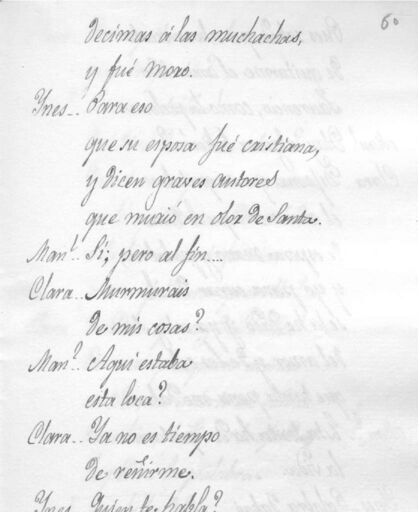 60
decimas á las muchachas,
y fué moro.
Ynes.. Para eso
que su esposa fué cristiana,
y dicen graves autores
que murió en olor de Santa.
Man.l Si; pero al fin....
Clara.. Murmurais
de mis cosas?
Man.l Aqui estaba
esta loca?
Clara.. Ya no es tiempo
de reñirme.
Ynes.. Quien te habla?